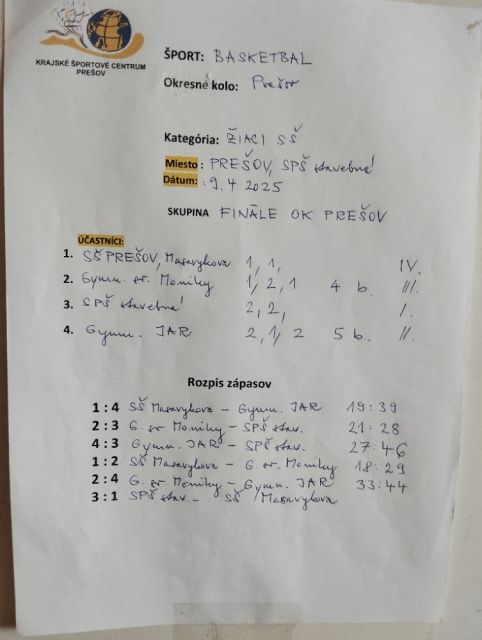 KRAJSKÉ ŠPORTOVÉ CENTRUM
PREŠOV
ŠPORT: BASKETBAL
Okresné kolo: Prešov
Kategória: ŽIACI SŠ
Miesto: PREŠOV, SPŠ stavebná
Dátum: 9.4 2025
SKUPINA FINÁLE OK PREŠOV
ÚČASTNÍCI:
1. SŠ PREŠOV, Masarykova 1, 1, IV.
2. Gymn. sv. Moniky 1, 2, 1 4 b. III.
3. SPŠ stavebná 2, 2, I.
4. Gymn. JAR 2, 1, 2 5 b. II.
Rozpis zápasov
1 : 4 SŠ Masarykova - Gymn. JAR 19:39
2 : 3 G. sv. Moniky - SPŠ stav. 21:28
4 : 3 Gymn. JAR - SPŠ stav. 27:46
1 : 2 SŠ Masarykova - G. sv. Moniky 18:29
2 : 4 G. sv. Moniky - Gymn. JAR 33:44
3 : 1 SPŠ stav. - SŠ Masarykova